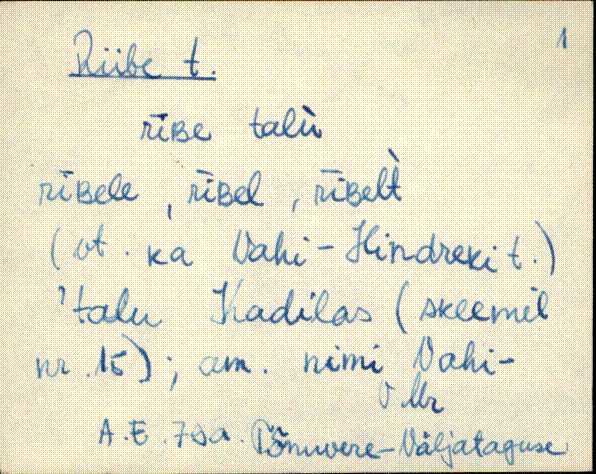 1
Riibe t.
rīʙe talù
rīʙele, rīʙel, rīʙelt̀
(vt. ka Vahi-Hindreki t.)
'talu Kadilas (skeemil
nr. 15)'; am. nimi Vahi-
VMr
A.E. 79a. Põnuvere-Väljataguse